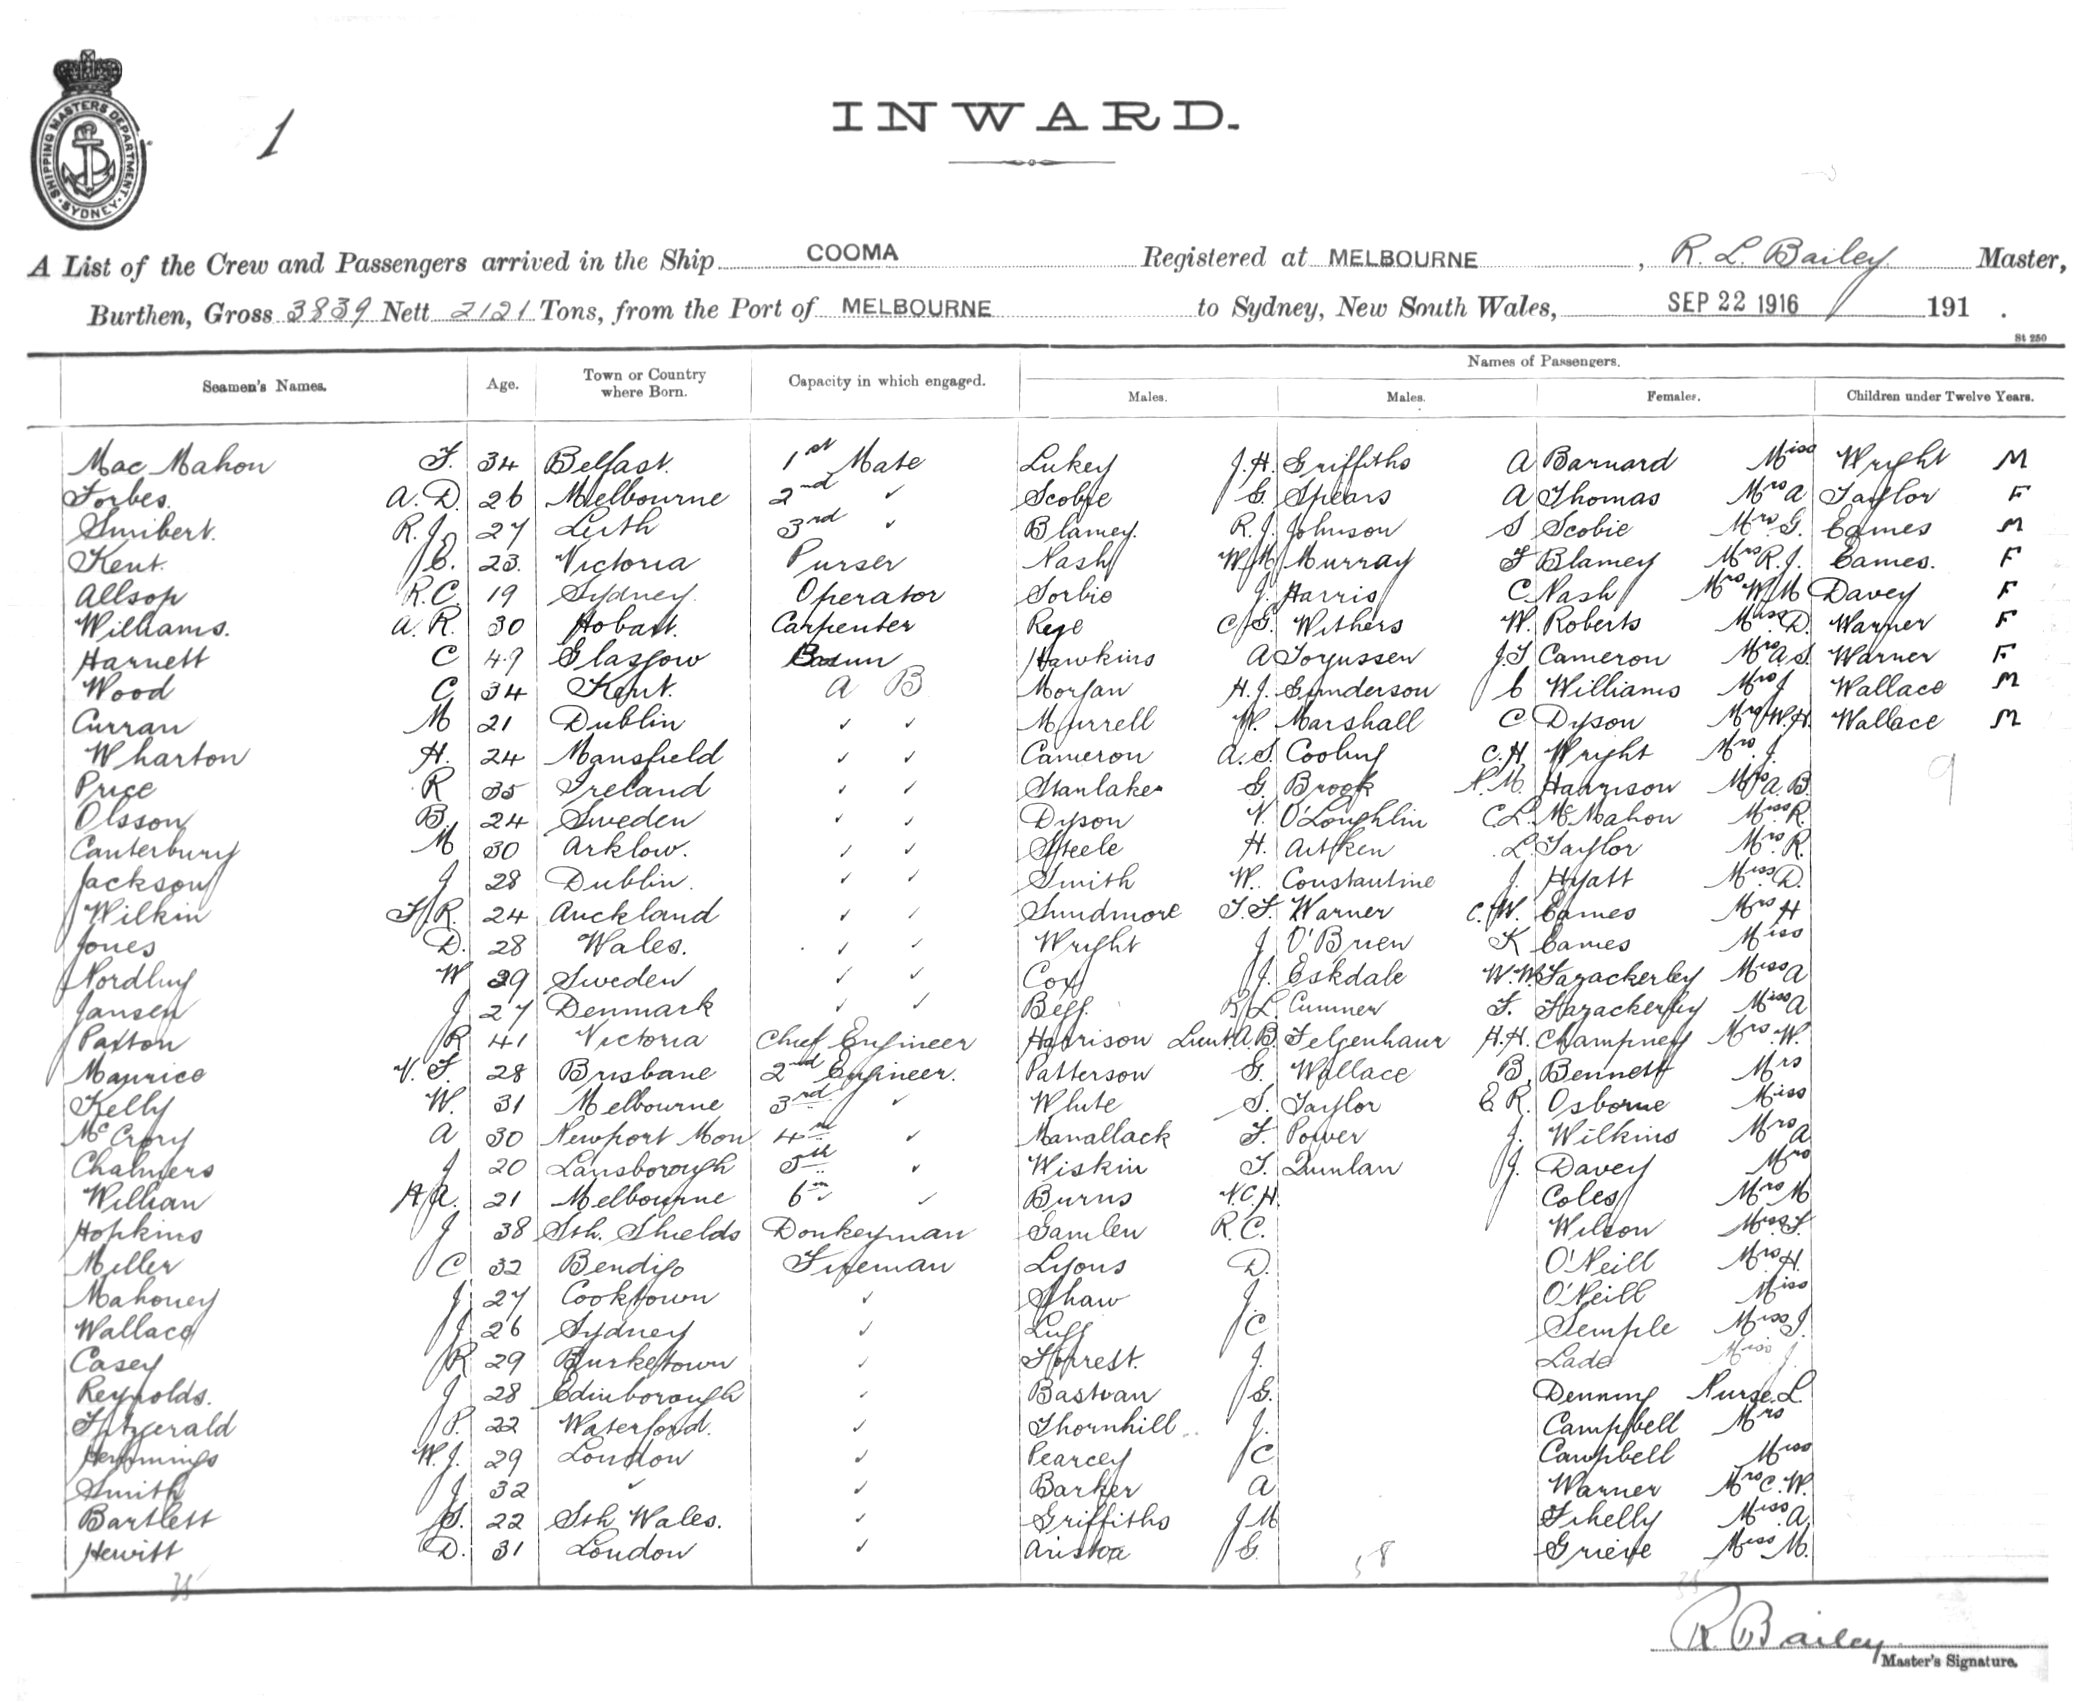 SHIPPING MASTERS DEPARTMENT
SYDNEY
1
INWARD.
A List of the Crew and Passengers arrived in the Ship COOMA Registered at MELBOURNE, R. L. Bailey Master,
Burthen, Gross 3839 Nett 2121 Tons, from the Port of MELBOURNE to Sydney, New South Wales, SEP 22 1916 191 .
St 250
Names of Passengers.
Seamen's Names. Age. Town or Country where Born. Capacity in which engaged. Males. Males. Females. Children under Twelve Years.
Mac Mahon F. 34 Belfast. 1st Mate Lukey J.H. Griffiths A Barnard Miss Wright M
Forbes. A. D. 26 Melbourne 2nd ✓ Scobie G. Spears A Thomas Mrs A Taylor F
Smibert. R. J. 27 Leith 3rd ✓ Blamey. R. J. Johnson S Scobie Mrs. G. Eames M
Kent. E. 23. Victoria Purser Nash W.M Murray F Blamey Mrs R. J. Eames. F
Allsop R.C. 19 Sydney. Operator Sorbie J. Harris C Nash Mrs W M Davey F
Williams. A. R. 30 Hobart. Carpenter Rege C. G. Withers W. Roberts Miss D. Warner F
Harnett C 49 Glasgow Bosun Hawkins A Torgussen J.F Cameron Mrs A S. Warner F
Wood C 34 Kent. A B Morgan H. J. Gunderson C Williams Mrs J Wallace M
Curran M 21 Dublin ✓ ✓ Murrell W. Marshall C Dyson Mrs W. H. Wallace M
Wharton H. 24 Mansfield ✓ ✓ Cameron A. S. Cooling C. H. Wright Mrs J.
Price R 35 Ireland ✓ ✓ Stanlake G. Brook Harrison Mrs A. B. 9
Olsson B. 24 Sweden ✓ ✓ Dyson V. O'Loughlin C. L. McMahon Miss R.
Canterbury M 30 Arklow. ✓ ✓ Steele H. Aitken L. Taylor Mrs. R.
Jackson J 28 Dublin. ✓ ✓ Smith W. Constantine J. Hyatt Miss D.
Wilkin F. R. 24 Auckland ✓ ✓ Smidmore T. F. Warner C. W. Eames Mrs H
Jones D. 28 Wales. ✓ ✓ Wright J O'Brien K Eames Miss
Nordling W 39 Sweden ✓ ✓ Cox J. Eskdale W. W. Fazackerley Miss A
Jansen J 27 Denmark ✓ ✓ Begg. R. L. Cummer F. Fazackerley Miss A
Paxton R 41 Victoria Chief Engineer Harrison Lieut. A. B. Felgenhaur H. H. Champney Mrs. W.
Maurice V. F. 28 Brisbane 2nd Engineer. Patterson G. Wallace B. Bennett Mrs
Kelly W. 31 Melbourne 3rd ✓ White S. Taylor E. R. Osborne Miss
McCrory A 30 Newport Mon 4th ✓ Manallack F. Power J. Wilkins Mrs A
Chalmers J 20 Lansborough 5th ✓ Wiskin T. Quinlan J. Davey Mrs
Willian H. A. 21 Melbourne 6th ✓ Burns N. C. H. Coles Mrs M
Hopkins J 38 Sth. Shields Donkeyman Gamlen R. C. Wilson Miss F.
Miller C 32 Bendigo Fireman Lyons D. O'Neill Mrs H.
Mahoney J 27 Cooktown ✓ Shaw J. O'Neill Miss
Wallace J 26 Sydney ✓ Luff C Semple Miss J.
Casey R 29 Burketown ✓ Forrest. J. Lade Miss J.
Reynolds. J 28 Edinborough ✓ Bastvan G. Denning Nurse L.
Fitzgerald P. 22 Waterford. ✓ Thornhill J. Campbell Mrs
Hemmings W. J. 29 London ✓ Pearcey C Campbell Miss
Smith J 32 ✓ ✓ Barker A Warner Mrs C. W.
Bartlett S. 22 Sth Wales. ✓ Griffiths J M Schelly Miss A.
Hewitt D. 31 London ✓ G. Grieve Miss M.
35 58 35
R. Bailey
Master's Signature.